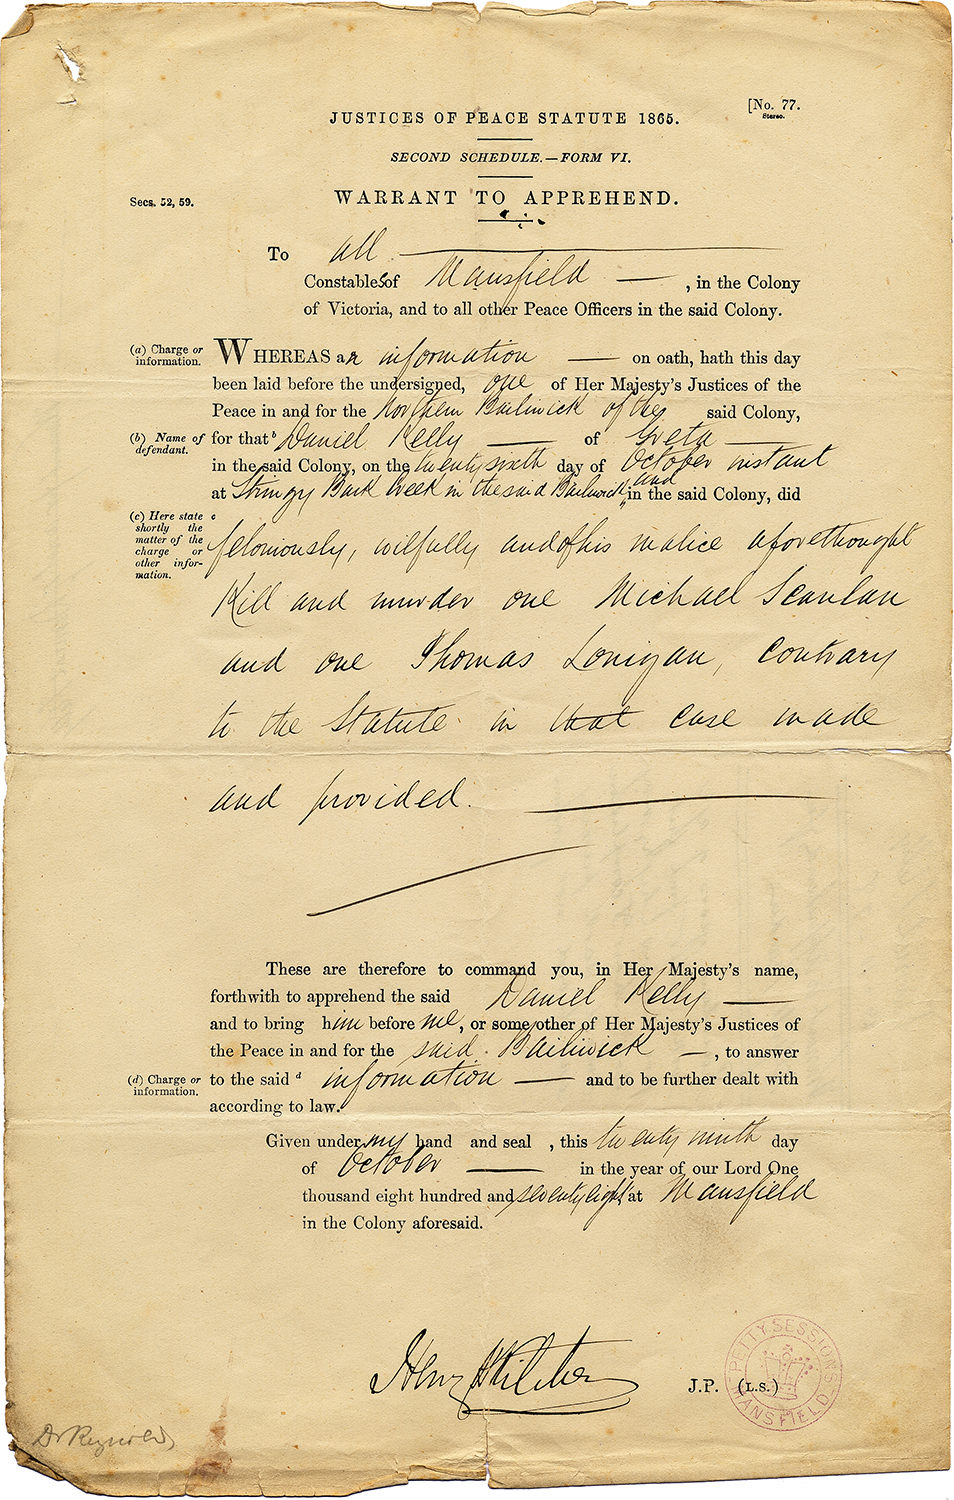 [No. 77.
Stereo.
JUSTICES OF PEACE STATUTE 1865.
SECOND SCHEDULE.—FORM VI.
Secs. 52, 59.
WARRANT TO APPREHEND.
To all
Constables of Mansfield , in the Colony
of Victoria, and to all other Peace Officers in the said Colony.
(a) Charge or
information.
WHEREAS an information on oath, hath this day
been laid before the undersigned, one of Her Majesty's Justices of the
Peace in and for the Northern Bailiwick of the said Colony,
(b) Name of
defendant.
for that b Daniel Kelly of Greta
in the said Colony, on the twenty sixth day of October instant
at Stringy Bark Creek in the said Bailiwick and in the said Colony, did
(c) Here state
shortly the
matter of the
charge or
other infor-
mation.
c
feloniously, wilfully and of his malice aforethought
Kill and murder one Michael Scanlan
and one Thomas Lonigan, contrary
to the Statute in that case made
and provided.
These are therefore to command you, in Her Majesty's name,
forthwith to apprehend the said Daniel Kelly
and to bring him before me, or some other of Her Majesty's Justices of
the Peace in and for the said Bailiwick , to answer
(d) Charge or
information.
to the said d information and to be further dealt with
according to law.
Given under my hand and seal , this twenty ninth day
of October in the year of our Lord One
thousand eight hundred and seventy eight at Mansfield
in the Colony aforesaid.
Henry
J.P. (L.S.)
PETTY SESSIONS
MANSFIELD
Dr Reynolds